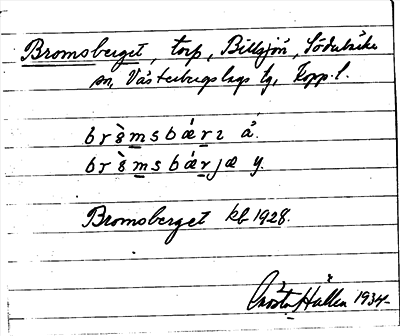 Bromsberget, torp, Billsjön, Söderbärke
sn, Västerbergslags tg, Kopp. l.
brò̀msbærɪ å.
brò̀msbærjæ y.
Bromsberget kb 1928.
Gösta Hållén 1934